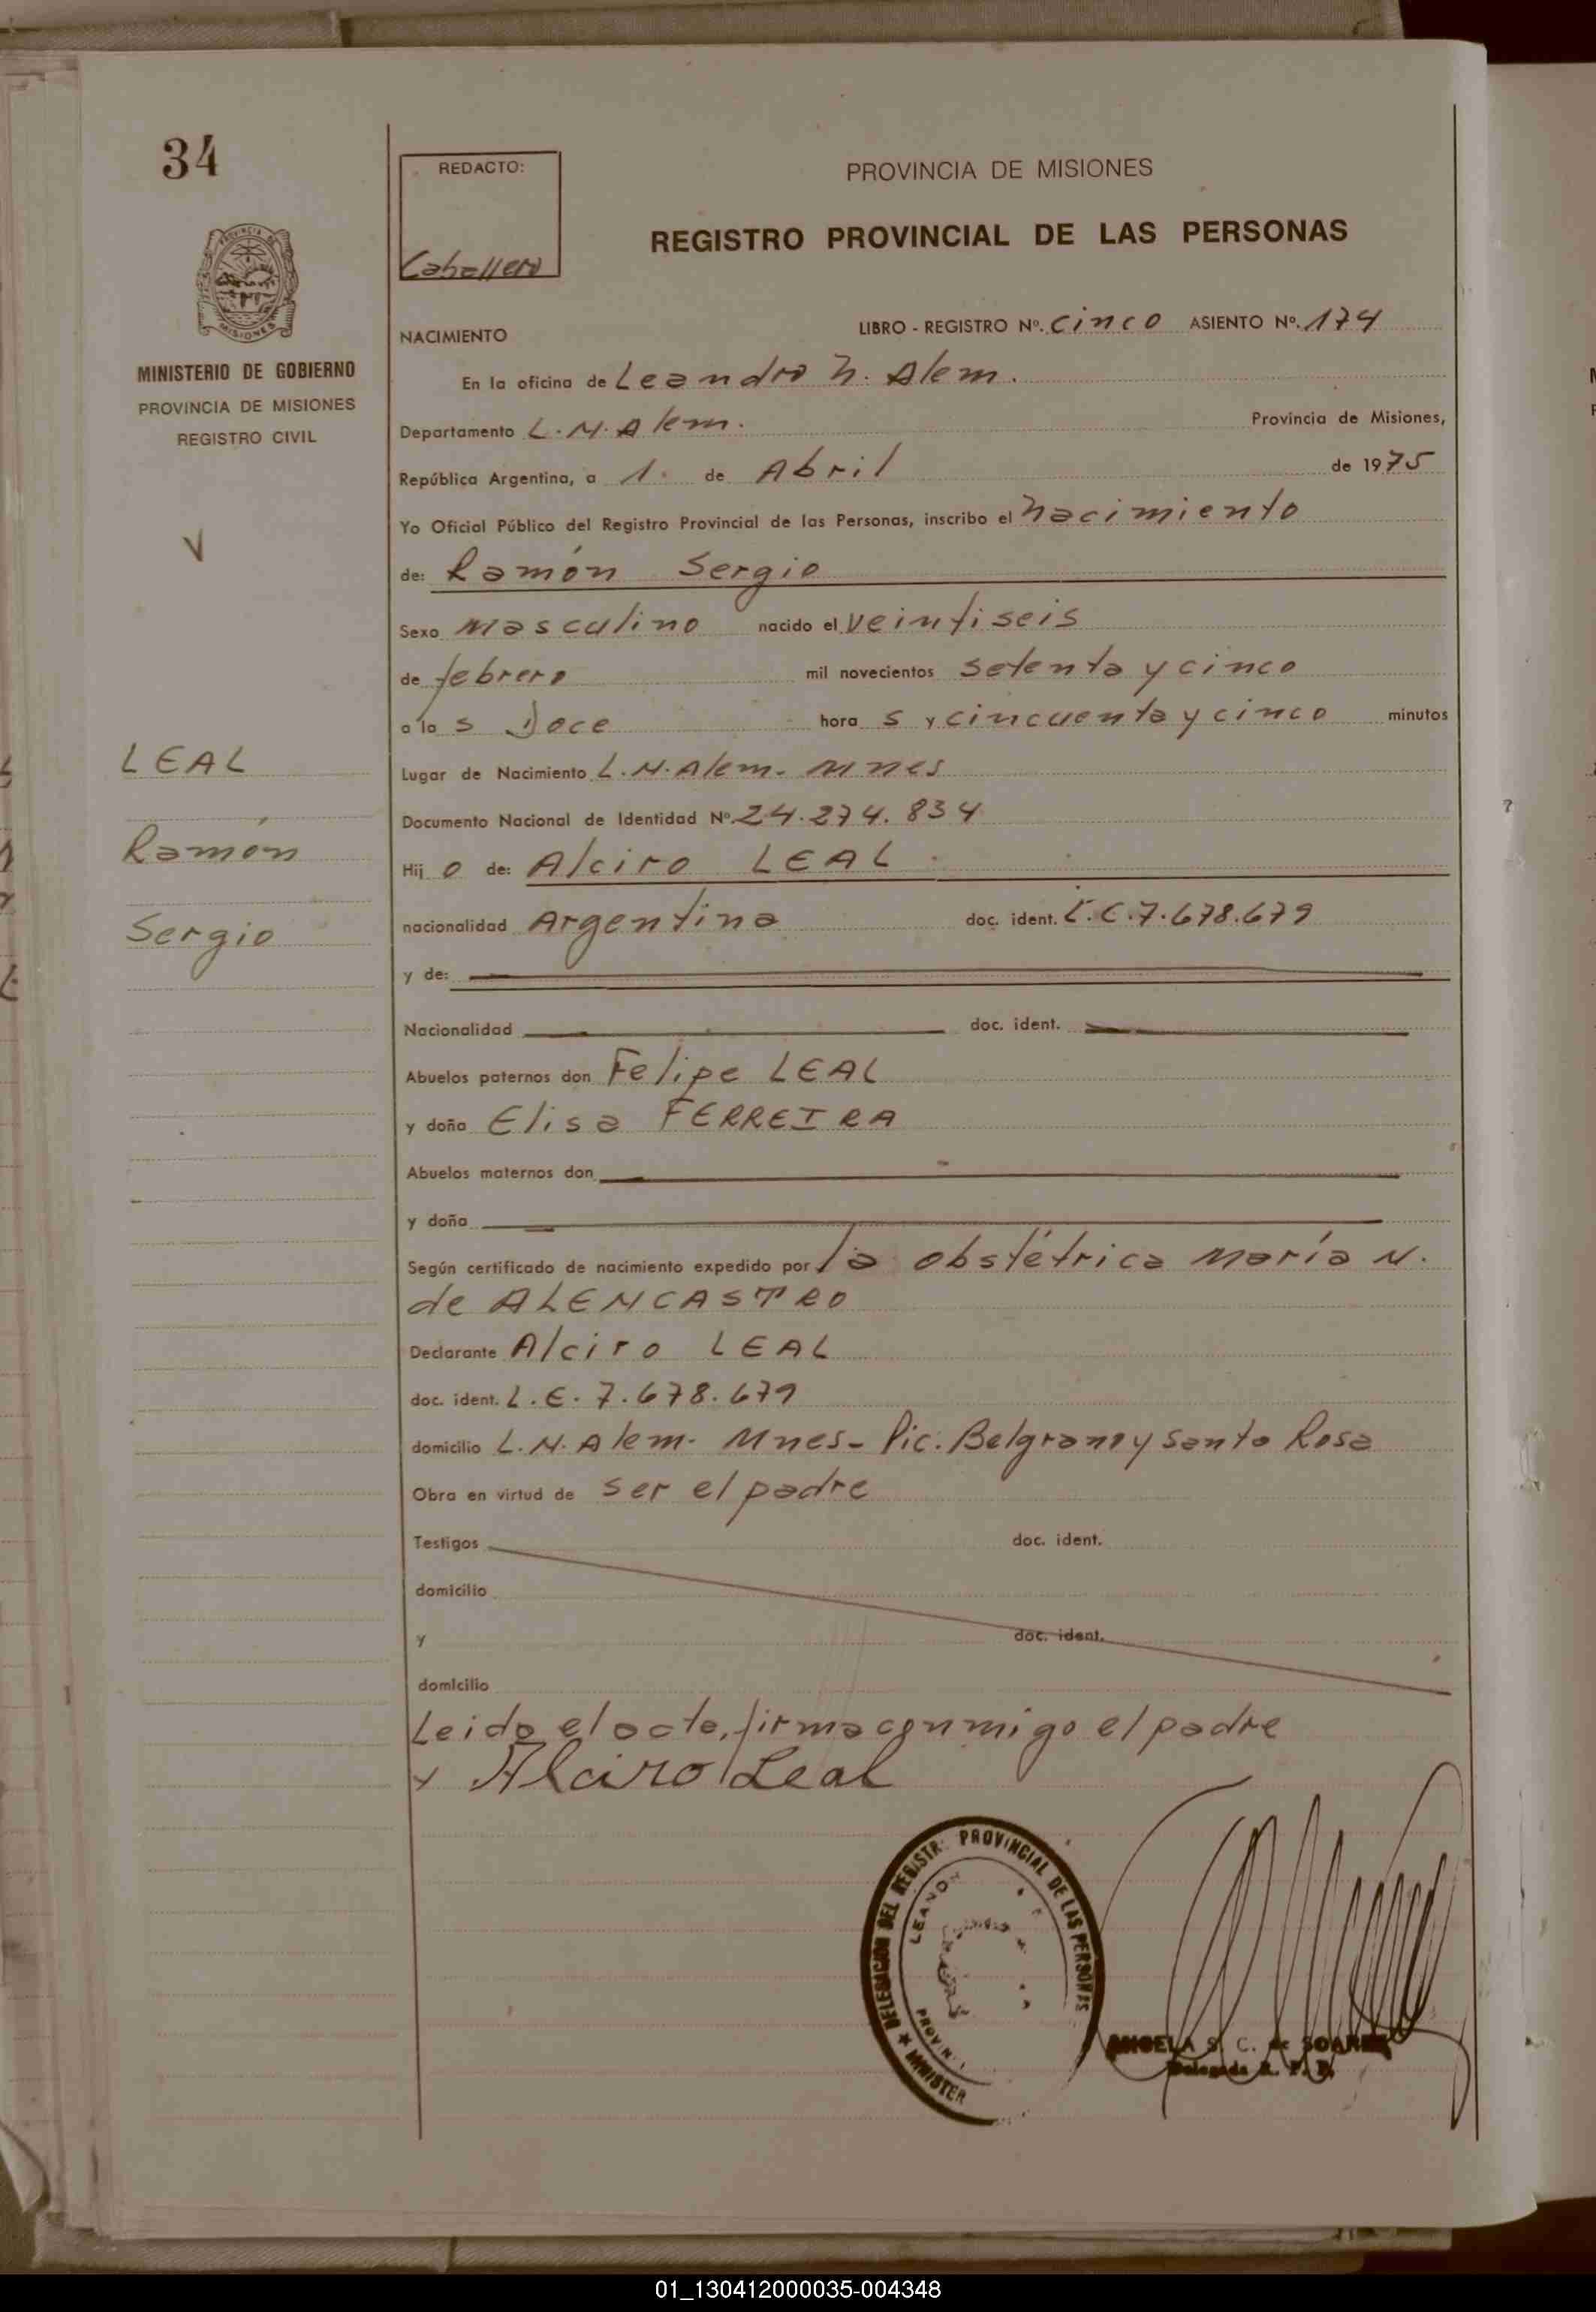 34
REDACTO:
Caballero
PROVINCIA DE MISIONES
REGISTRO PROVINCIAL DE LAS PERSONAS
PROVINCIA DE
MISIONES
MINISTERIO DE GOBIERNO
PROVINCIA DE MISIONES
REGISTRO CIVIL
V
LEAL
Ramón
Sergio
NACIMIENTO
LIBRO - REGISTRO Nº. cinco ASIENTO Nº. 174
En la oficina de Leandro N. Alem.
Departamento L. N. Alem. Provincia de Misiones,
República Argentina, a 1º de Abril de 1975
Yo Oficial Público del Registro Provincial de las Personas, inscribo el nacimiento
de: Ramón Sergio
Sexo masculino nacido el veintiseis
de febrero mil novecientos setenta y cinco
a las Doce horas y cincuenta y cinco minutos
Lugar de Nacimiento L. N. Alem. Mnes
Documento Nacional de Identidad Nº. 24.274.834
Hijo de: Alciro LEAL
nacionalidad Argentina doc. ident. L.E. 7.678.679
y de:
Nacionalidad doc. ident.
Abuelos paternos don Felipe LEAL
y doña Elisa FERREIRA
Abuelos maternos don
y doña
Según certificado de nacimiento expedido por la obstétrica María N.
de ALENCASTRO
Declarante Alciro LEAL
doc. ident. L.E. 7.678.679
domicilio L. N. Alem- Mnes- Pic. Belgrano y Santa Rosa
Obra en virtud de ser el padre
Testigos doc. ident.
domicilio
y doc. ident.
domicilio
Leida el acta, firma conmigo el padre
x Alciro Leal
DELEGACION DEL REGISTR. PROVINCIAL DE LAS PERSONAS
LEAND
PROVIN
★ MINISTER
ANGELA S. C. de SOAREZ
Delegada R. P. P.
01_130412000035-004348